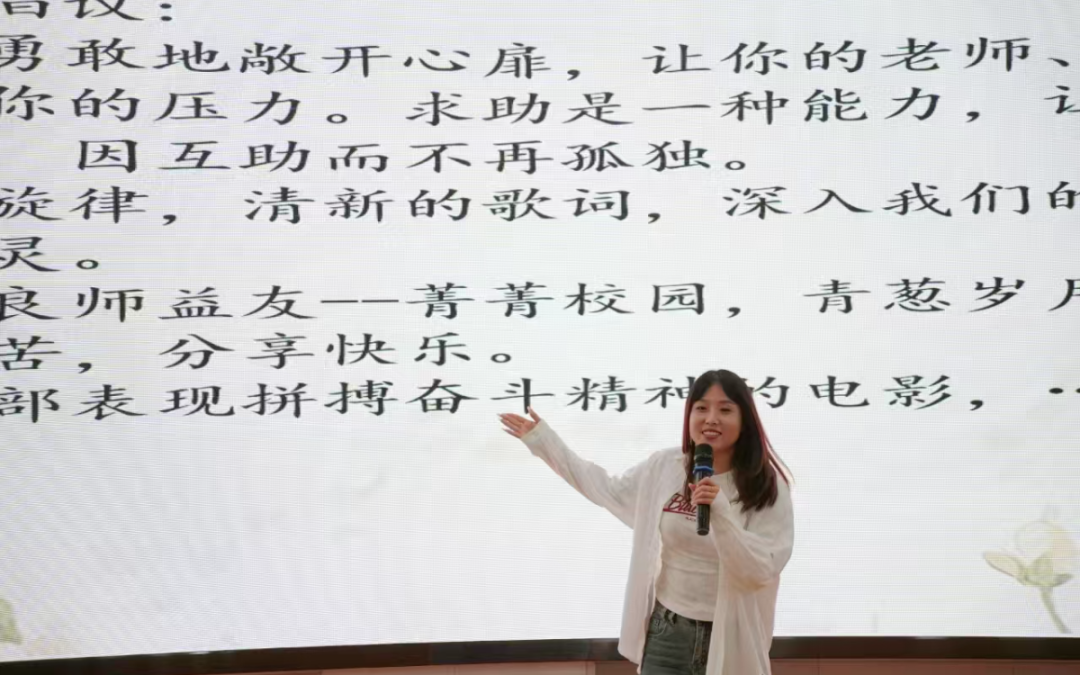 倡议：
勇敢地敞开心扉，让你的老师、
你的压力。求助是一种能力，让
因互助而不再孤独。
旋律，清新的歌词，深入我们的
灵。
良师益友——菁菁校园，青葱岁月
苦，分享快乐。
部表现拼搏奋斗精神的电影，…